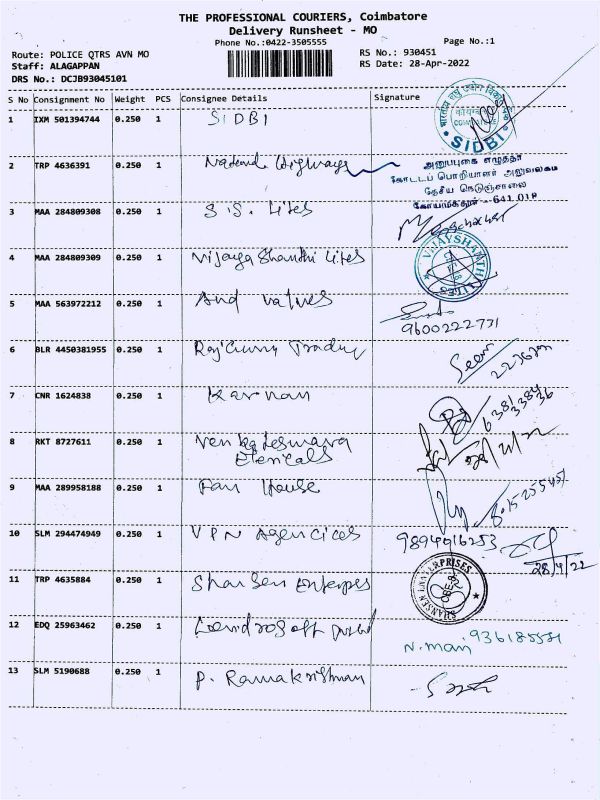 THE PROFESSIONAL COURIERS, Coimbatore
Delivery Runsheet - MO
Phone No.:0422-3505555
Page No.:1
Route: POLICE QTRS AVN MO
RS No.: 930451
Staff: ALAGAPPAN
RS Date: 28-Apr-2022
DRS No.: DCJB93045101
S No Consignment No Weight PCS Consignee Details Signature
1 IXM 501394744 0.250 1 SIDBI
SIDBI
2 TRP 4636391 0.250 1 Highways
அனுப்புகை எழுத்தர்
கோட்டப் பொறியாளர் அலுவலகம்
தேசிய நெடுஞ்சாலை
கோயம்புத்தூர் - 641 018
3 MAA 284809308 0.250 1 S.S. Lites
4 MAA 284809309 0.250 1 Vijaya Shanthi Lites
VIJAYSHANTHI LITES
5 MAA 563972212 0.250 1 And Valves
9600222731
6 BLR 4450381955 0.250 1
7 CNR 1624838 0.250 1 Karnan
8 RKT 8727611 0.250 1 Venkateswara
9 MAA 289958188 0.250 1 Fan House
10 SLM 294474949 0.250 1 VPN Agencices 9894916253
28/4/22
11 TRP 4635884 0.250 1 Shansen
SHANSEN ENTERPRISES
12 EDQ 25963462 0.250 1
N. Mani
13 SLM 5190688 0.250 1 P. Ramakrishnan